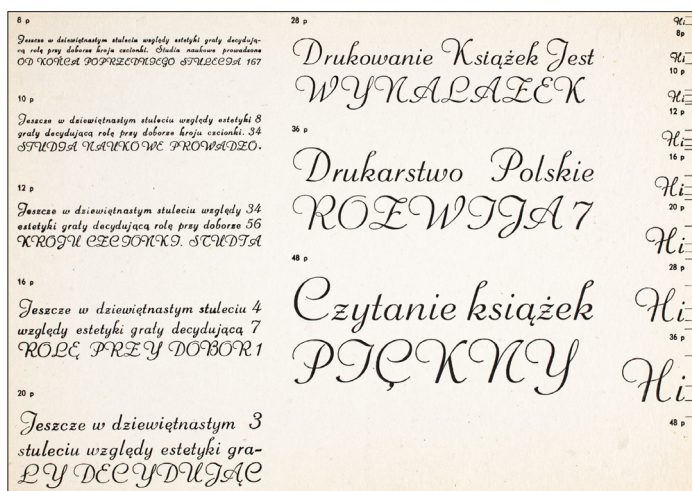 8 p
Jeszcze w dziewiętnastym stuleciu względy estetyki grały decydują-
cą rolę przy doborze kroju czcionki. Studia naukowe prowadzone
OD KOŃCA POPRZEDNIEGO STULECIA 167
10 p
Jeszcze w dziewiętnastym stuleciu względy estetyki 8
grały decydującą rolę przy doborze kroju czcionki. 34
STUDIA NAUKOWE PROWADZO-
12 p
Jeszcze w dziewiętnastym stuleciu względy 34
estetyki grały decydującą rolę przy doborze 56
KROJU CZCIONKI. STUDIA
16 p
Jeszcze w dziewiętnastym stuleciu 4
względy estetyki grały decydującą 7
ROLĘ PRZY DOBOR 1
20 p
Jeszcze w dziewiętnastym 3
stuleciu względy estetyki gra-
ŁY DECYDUJĄC
28 p
Drukowanie Książek Jest
WYNALAZEK
36 p
Drukarstwo Polskie
ROZWIJA 7
48 p
Czytanie książek
PIĘKNY
Hi
8p
Hi
10 p
Hi
12 p
Hi
16 p
Hi
20 p
Hi
28 p
Hi
36 p
Hi
48 p